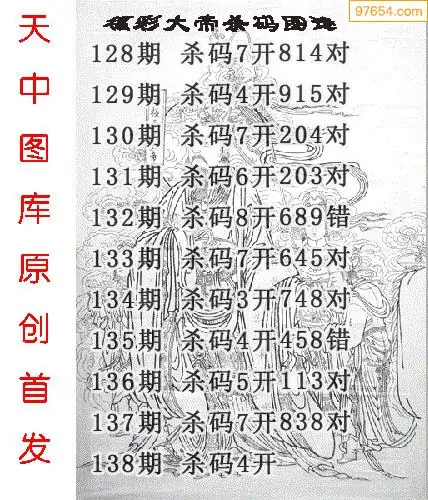 97654.com
福彩大帝杀码图
128期 杀码7开814对
129期 杀码4开915对
130期 杀码7开204对
131期 杀码6开203对
132期 杀码8开689错
133期 杀码7开645对
134期 杀码3开748对
135期 杀码4开458错
136期 杀码5开113对
137期 杀码7开838对
138期 杀码4开
天中图库原创首发